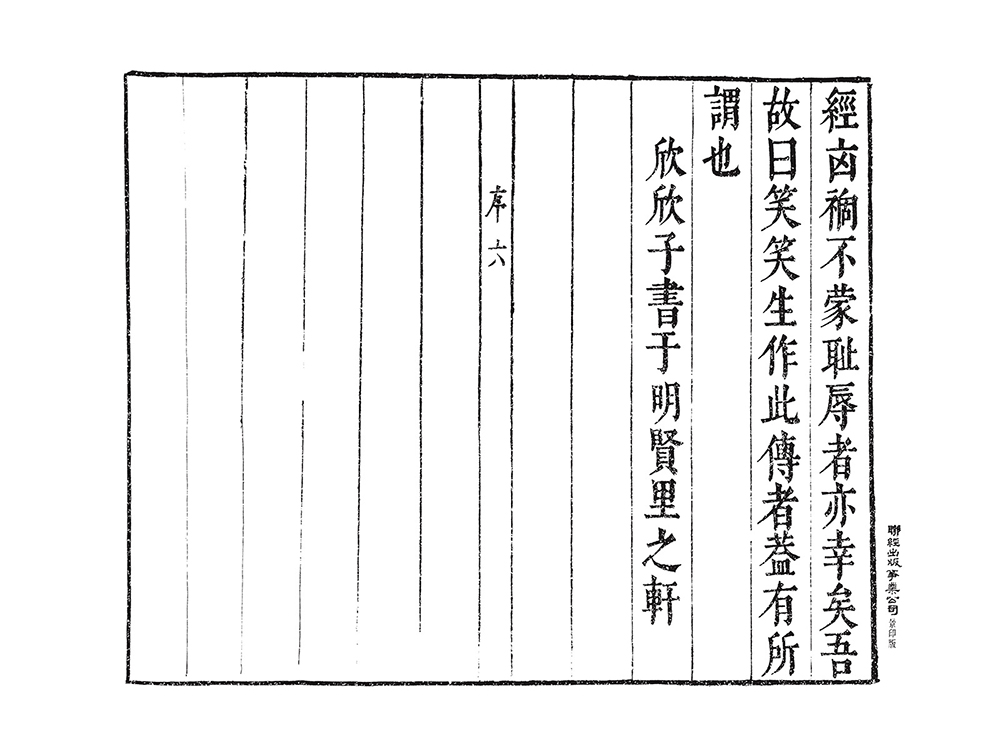 經卤禍不蒙耻辱者亦幸矣吾
故曰笑笑生作此傳者葢有所
謂也
欣欣子書于明賢里之軒
序 六
聯經出版事業公司 景印版